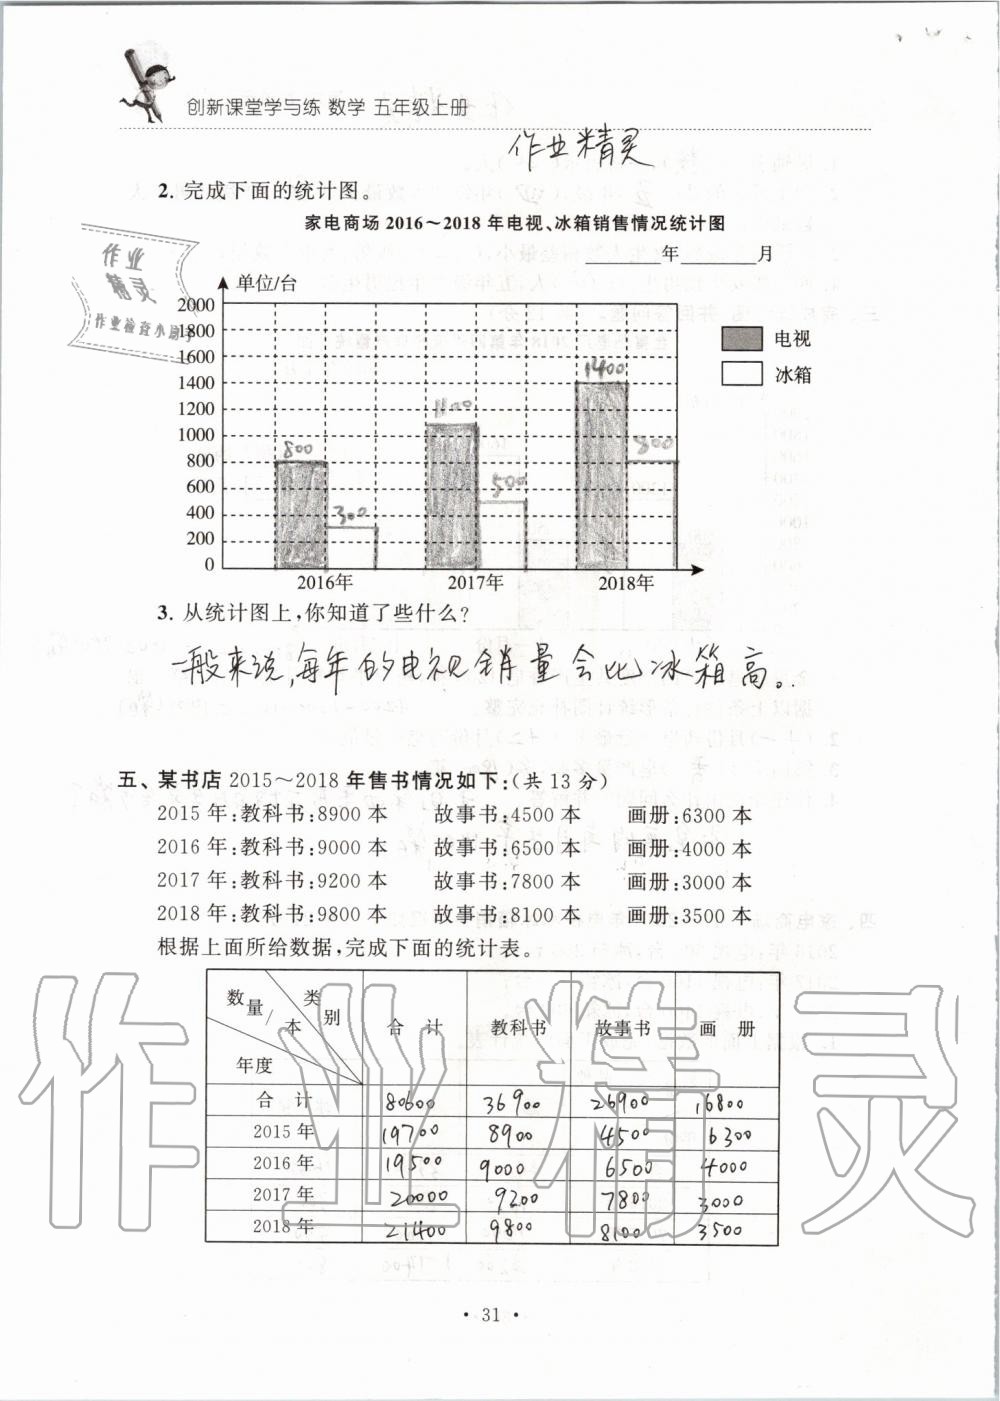 创新课堂学与练 数学 五年级上册
作业精灵
2. 完成下面的统计图。
家电商场 2016～2018 年电视、冰箱销售情况统计图
年 月
作业
精灵
作业检查小助手
单位/台
电视
冰箱
2000
1800
1600
1400
1200
1000
800
600
400
200
0
800
300
1100
500
1400
800
2016年 2017年 2018年
3. 从统计图上,你知道了些什么?
一般来说,每年的电视销量会比冰箱高。
五、某书店 2015～2018 年售书情况如下:(共 13 分)
2015 年:教科书:8900 本 故事书:4500 本 画册:6300 本
2016 年:教科书:9000 本 故事书:6500 本 画册:4000 本
2017 年:教科书:9200 本 故事书:7800 本 画册:3000 本
2018 年:教科书:9800 本 故事书:8100 本 画册:3500 本
根据上面所给数据,完成下面的统计表。
数量/本 类别 年度 合 计 教科书 故事书 画 册
合 计 80600 36900 26900 16800
2015 年 19700 8900 4500 6300
2016 年 19500 9000 6500 4000
2017 年 20000 9200 7800 3000
2018 年 21400 9800 8100 3500
作业精灵
· 31 ·